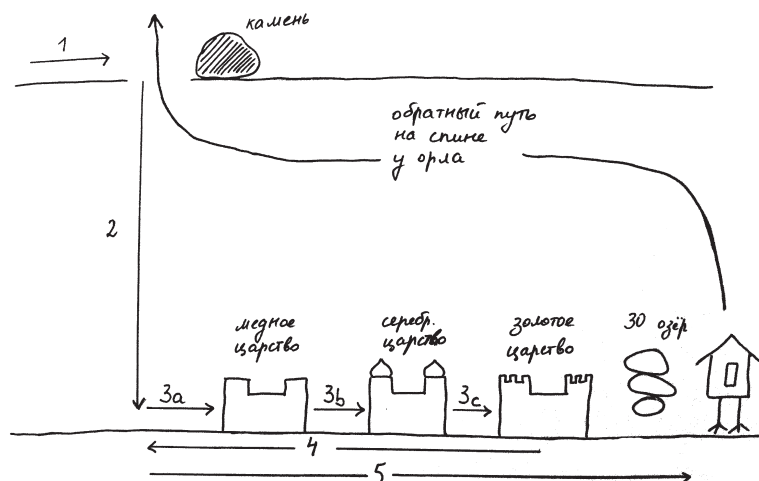 камень
1
обратный путь
на спине
у орла
2
медное
царство
серебр.
царство
золотое
царство
30 озёр
3a
3b
3c
4
5